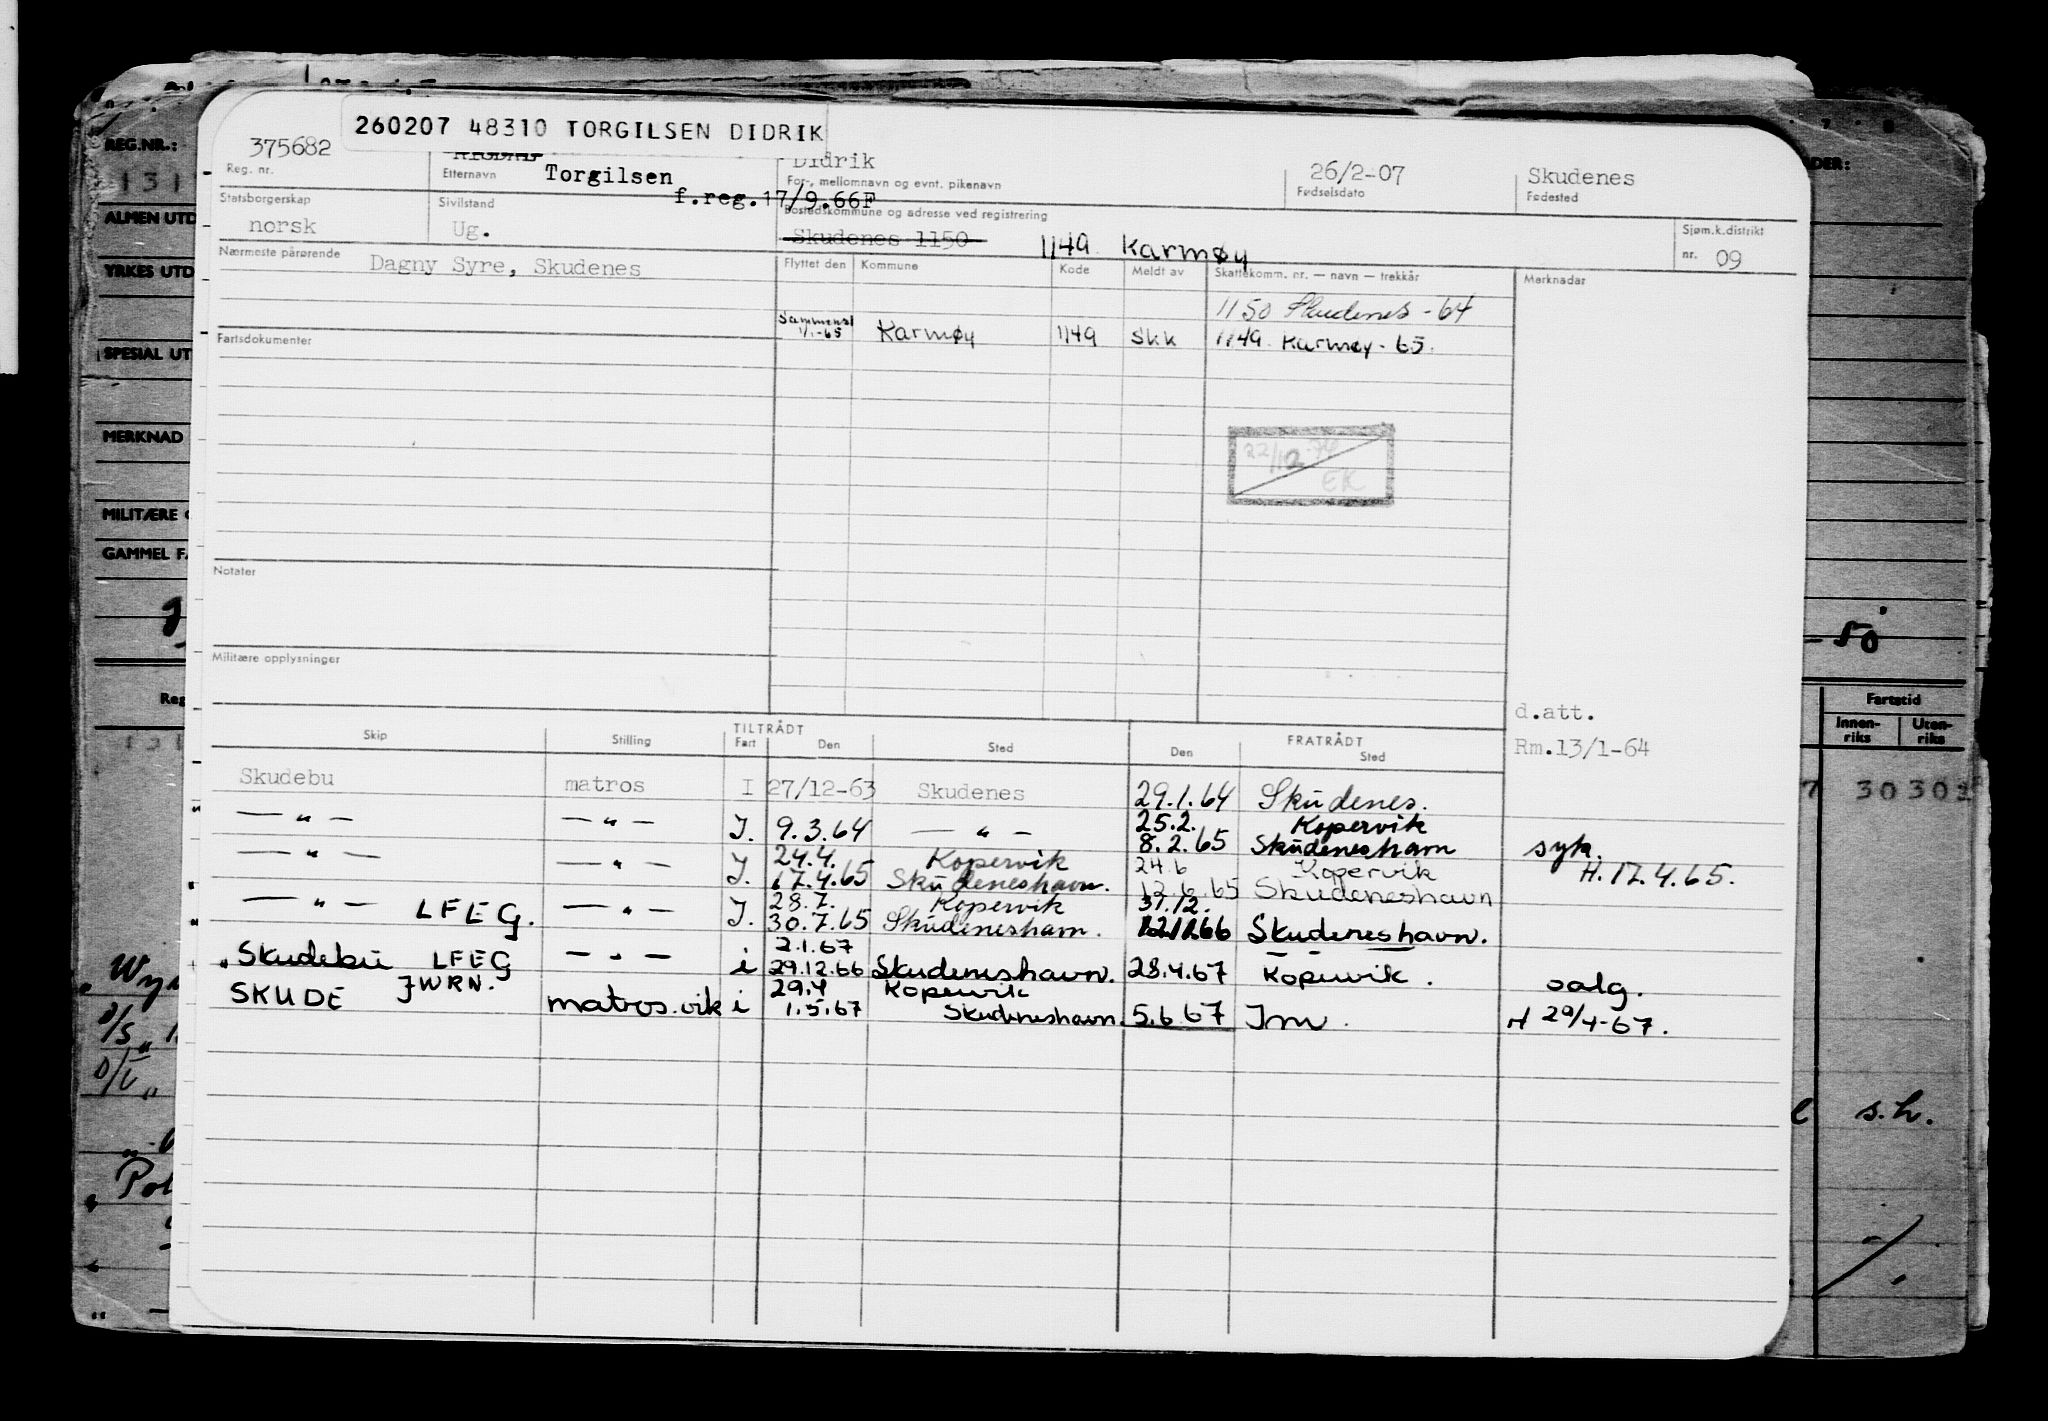 260207 48310 TORGILSEN DIDRIK
REG.NR.:
375682
Didrik
26/2-07
Skudenes
Reg. nr.
Etternavn
Torgilsen
For-, mellomnavn og evnt. pikenavn
Fødselsdato
Fødested
f.reg.17/9.66F
Statsborgerskap
Sivilstand
Bostedskommune og adresse ved registrering
norsk
Ug.
Skudenes 1150
1149 Karmøy
Sjøm.k.distrikt
nr. 09
Nærmeste pårørende
Dagny Syre, Skudenes
Flyttet den
Kommune
Kode
Meldt av
Skattekomm. nr. — navn — trekkår
Merknadar
1150 Skudenes - 64
Sammensl 1/1-65 Karmøy 1149 skk 1149 Karmøy - 65.
Fartsdokumenter
ALMEN UTD
YRKES UTD
SPESIAL UT
MERKNAD
MILITÆRE
GAMMEL FA
22/12-74
EK
Notater
Militære opplysninger
50
d.att.
Rm.13/1-64
Reg
Fartstid
Innen-
riks
Uten-
riks
Skip
Stilling
TILTRÅDT
Fart
Den
Sted
FRATRÅDT
Den
Sted
Skudebu matros I 27/12-63 Skudenes 29.1.64 Skudenes.
— " — — " — I. 9.3.64 — " — 25.2. Kopervik
8.2.65 Skudeneshavn syk.
— " — — " — I. 24.4. Kopervik 24.6 Kopervik H. 17.4.65.
17.4.65 Skudeneshavn. 12.6.65 Skudeneshavn
— " — LFEG. — " — I. 28.7. Kopervik 31.12.
30.7.65 Skudeneshavn. Skudeneshavn.
Skudebu LFEG — " — i 2.1.67
29.12.66 Skudeneshavn. 28.4.67 Kopervik. salg.
SKUDE JWRN. matros.vik i 29.4 Kopervik
1.5.67 Skudeneshavn. 5.6.67 Im. H 29/4-67.
s.h.